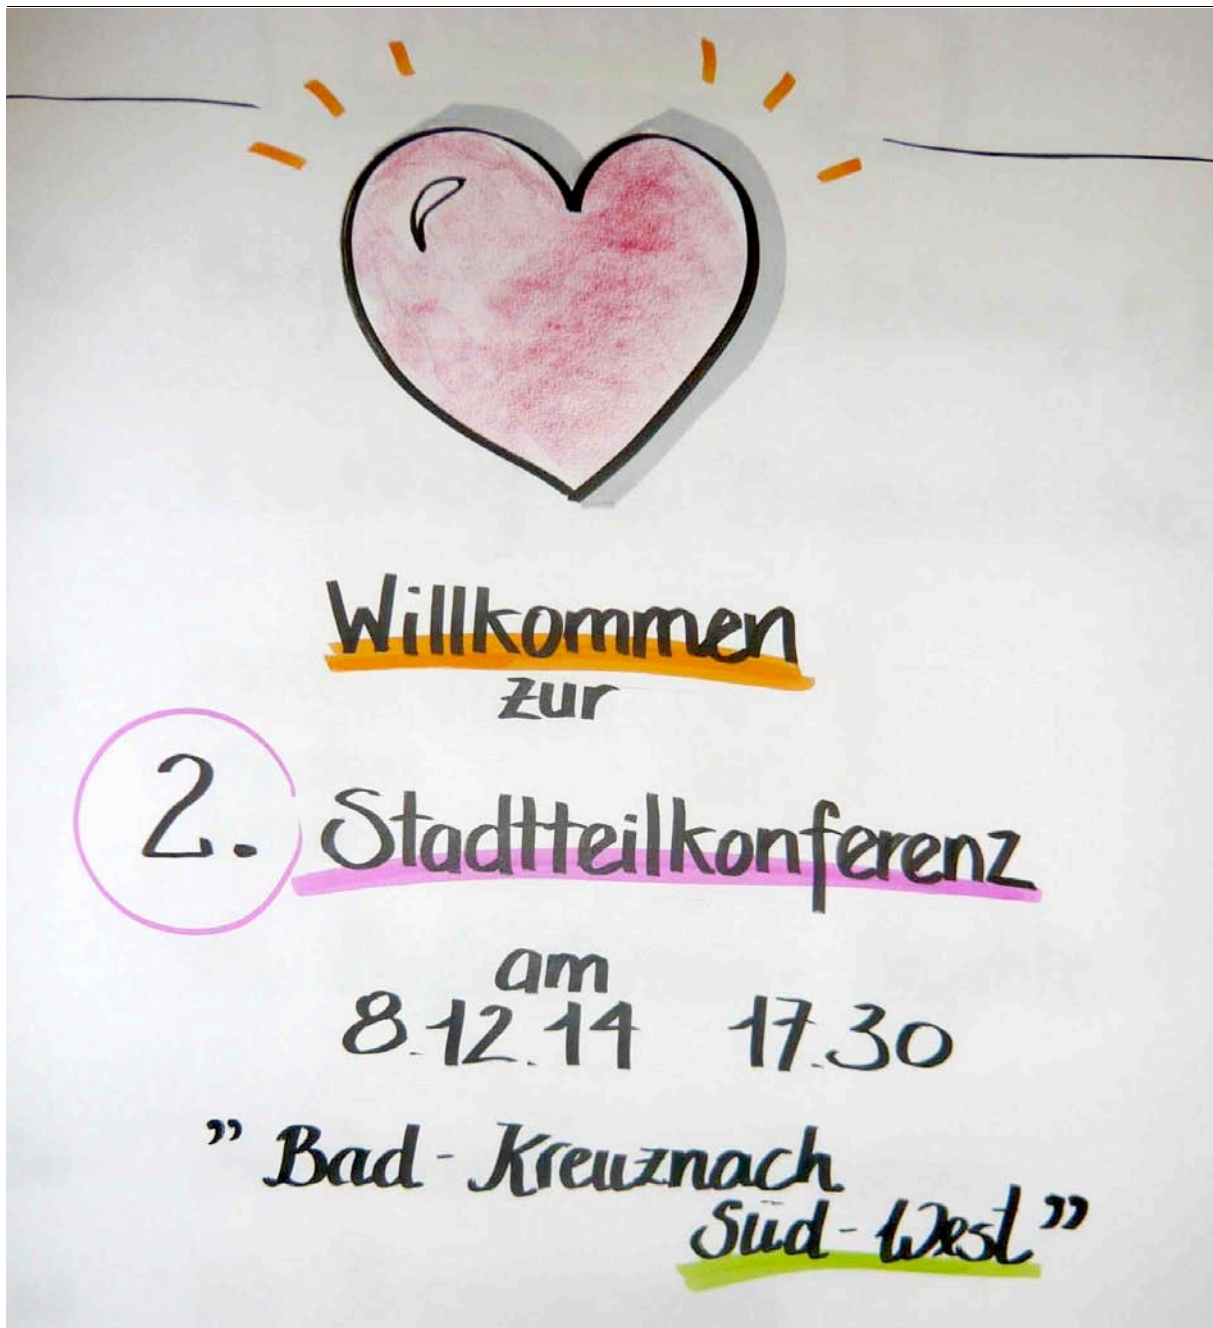 Willkommen
zur
2. Stadtteilkonferenz
am
8.12.14 17.30
" Bad-Kreuznach
Süd-West "